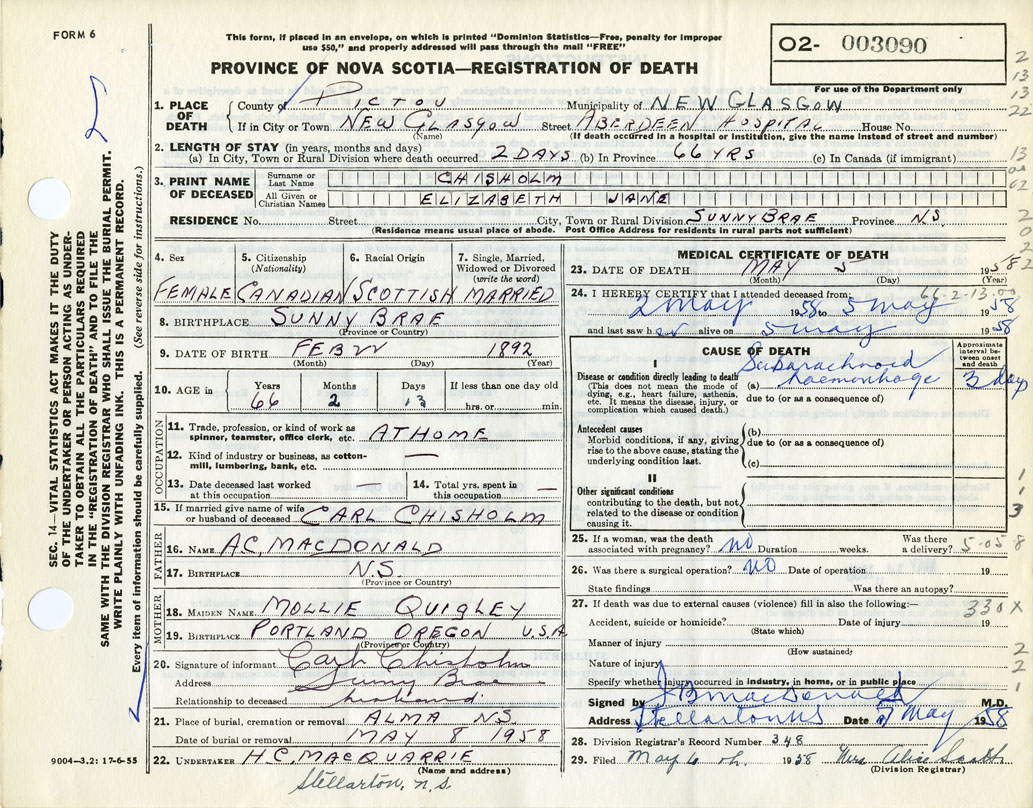 FORM 6
This form, if placed in an envelope, on which is printed "Dominion Statistics—Free, penalty for improper
use $50," and properly addressed will pass through the mail "FREE"
02- 003090
For use of the Department only
PROVINCE OF NOVA SCOTIA—REGISTRATION OF DEATH
1. PLACE OF DEATH County of PICTOU Municipality of NEW GLASGOW
If in City or Town NEW GLASGOW Street ABERDEEN HOSPITAL House No.
(Name) (If death occurred in a hospital or institution, give the name instead of street and number)
2. LENGTH OF STAY (in years, months and days)
(a) In City, Town or Rural Division where death occurred 2 DAYS (b) In Province 66 YRS (c) In Canada (if immigrant)
3. PRINT NAME OF DECEASED
Surname or Last Name CHISHOLM
All Given or Christian Names ELIZABETH JANE
RESIDENCE No. Street City, Town or Rural Division SUNNY BRAE Province N.S.
(Residence means usual place of abode. Post Office Address for residents in rural parts not sufficient)
4. Sex 5. Citizenship (Nationality) 6. Racial Origin 7. Single, Married, Widowed or Divorced (write the word)
FEMALE CANADIAN SCOTTISH MARRIED
8. BIRTHPLACE SUNNY BRAE
(Province or Country)
9. DATE OF BIRTH FEB 22 1892
(Month) (Day) (Year)
10. AGE in Years Months Days If less than one day old
66 2 13 hrs. or min.
OCCUPATION
11. Trade, profession, or kind of work as spinner, teamster, office clerk, etc. AT HOME
12. Kind of industry or business, as cotton-mill, lumbering, bank, etc. —
13. Date deceased last worked at this occupation — 14. Total yrs. spent in this occupation —
15. If married give name of wife or husband of deceased CARL CHISHOLM
FATHER
16. NAME A.C. MACDONALD
17. BIRTHPLACE N.S.
(Province or Country)
MOTHER
18. MAIDEN NAME MOLLIE QUIGLEY
19. BIRTHPLACE PORTLAND OREGON U.S.A
(Province or Country)
20. Signature of informant Carl Chisholm
Address Sunny Brae
Relationship to deceased husband
21. Place of burial, cremation or removal ALMA NS
Date of burial or removal MAY 8 1958
22. UNDERTAKER H.C. MACQUARRIE
(Name and address)
Stellarton, N.S
9004—3.2: 17-6-55
SEC. 14—VITAL STATISTICS ACT MAKES IT THE DUTY
OF THE UNDERTAKER OR PERSON ACTING AS UNDER-
TAKER TO OBTAIN ALL THE PARTICULARS REQUIRED
IN THE "REGISTRATION OF DEATH" AND TO FILE THE
SAME WITH THE DIVISION REGISTRAR WHO SHALL ISSUE THE BURIAL PERMIT.
WRITE PLAINLY WITH UNFADING INK. THIS IS A PERMANENT RECORD.
Every item of information should be carefully supplied. (See reverse side for instructions.)
MEDICAL CERTIFICATE OF DEATH
23. DATE OF DEATH MAY 5 1958
(Month) (Day) (Year)
66-2-13.00
24. I HEREBY CERTIFY that I attended deceased from:
2 May 1958 to 5 May 1958
and last saw her alive on 5 May 1958
CAUSE OF DEATH
Approximate interval between onset and death
I
Disease or condition directly leading to death
(This does not mean the mode of dying, e.g., heart failure, asthenia, etc. It means the disease, injury, or complication which caused death.)
(a) Subarachnoid haemorrhage 3 day
due to (or as a consequence of)
Antecedent causes
Morbid conditions, if any, giving rise to the above cause, stating the underlying condition last.
(b)
due to (or as a consequence of)
(c)
II
Other significant conditions
contributing to the death, but not related to the disease or condition causing it.
25. If a woman, was the death associated with pregnancy? no Duration weeks. Was there a delivery?
5-058
26. Was there a surgical operation? NO Date of operation 19
State findings Was there an autopsy?
27. If death was due to external causes (violence) fill in also the following:—
330 X
Accident, suicide or homicide? Date of injury 19
(State which)
Manner of injury
(How sustained)
Nature of injury
Specify whether injury occurred in industry, in home, or in public place
Signed by J B MacDonald M.D.
Address Stellarton NS Date 7 May 1958
28. Division Registrar's Record Number 348
29. Filed May 6 th. 1958 Mrs Alice Scott
(Division Registrar)
2
13
13
22
13
00
62
2
0
2
2
1
1
3
2
2
1